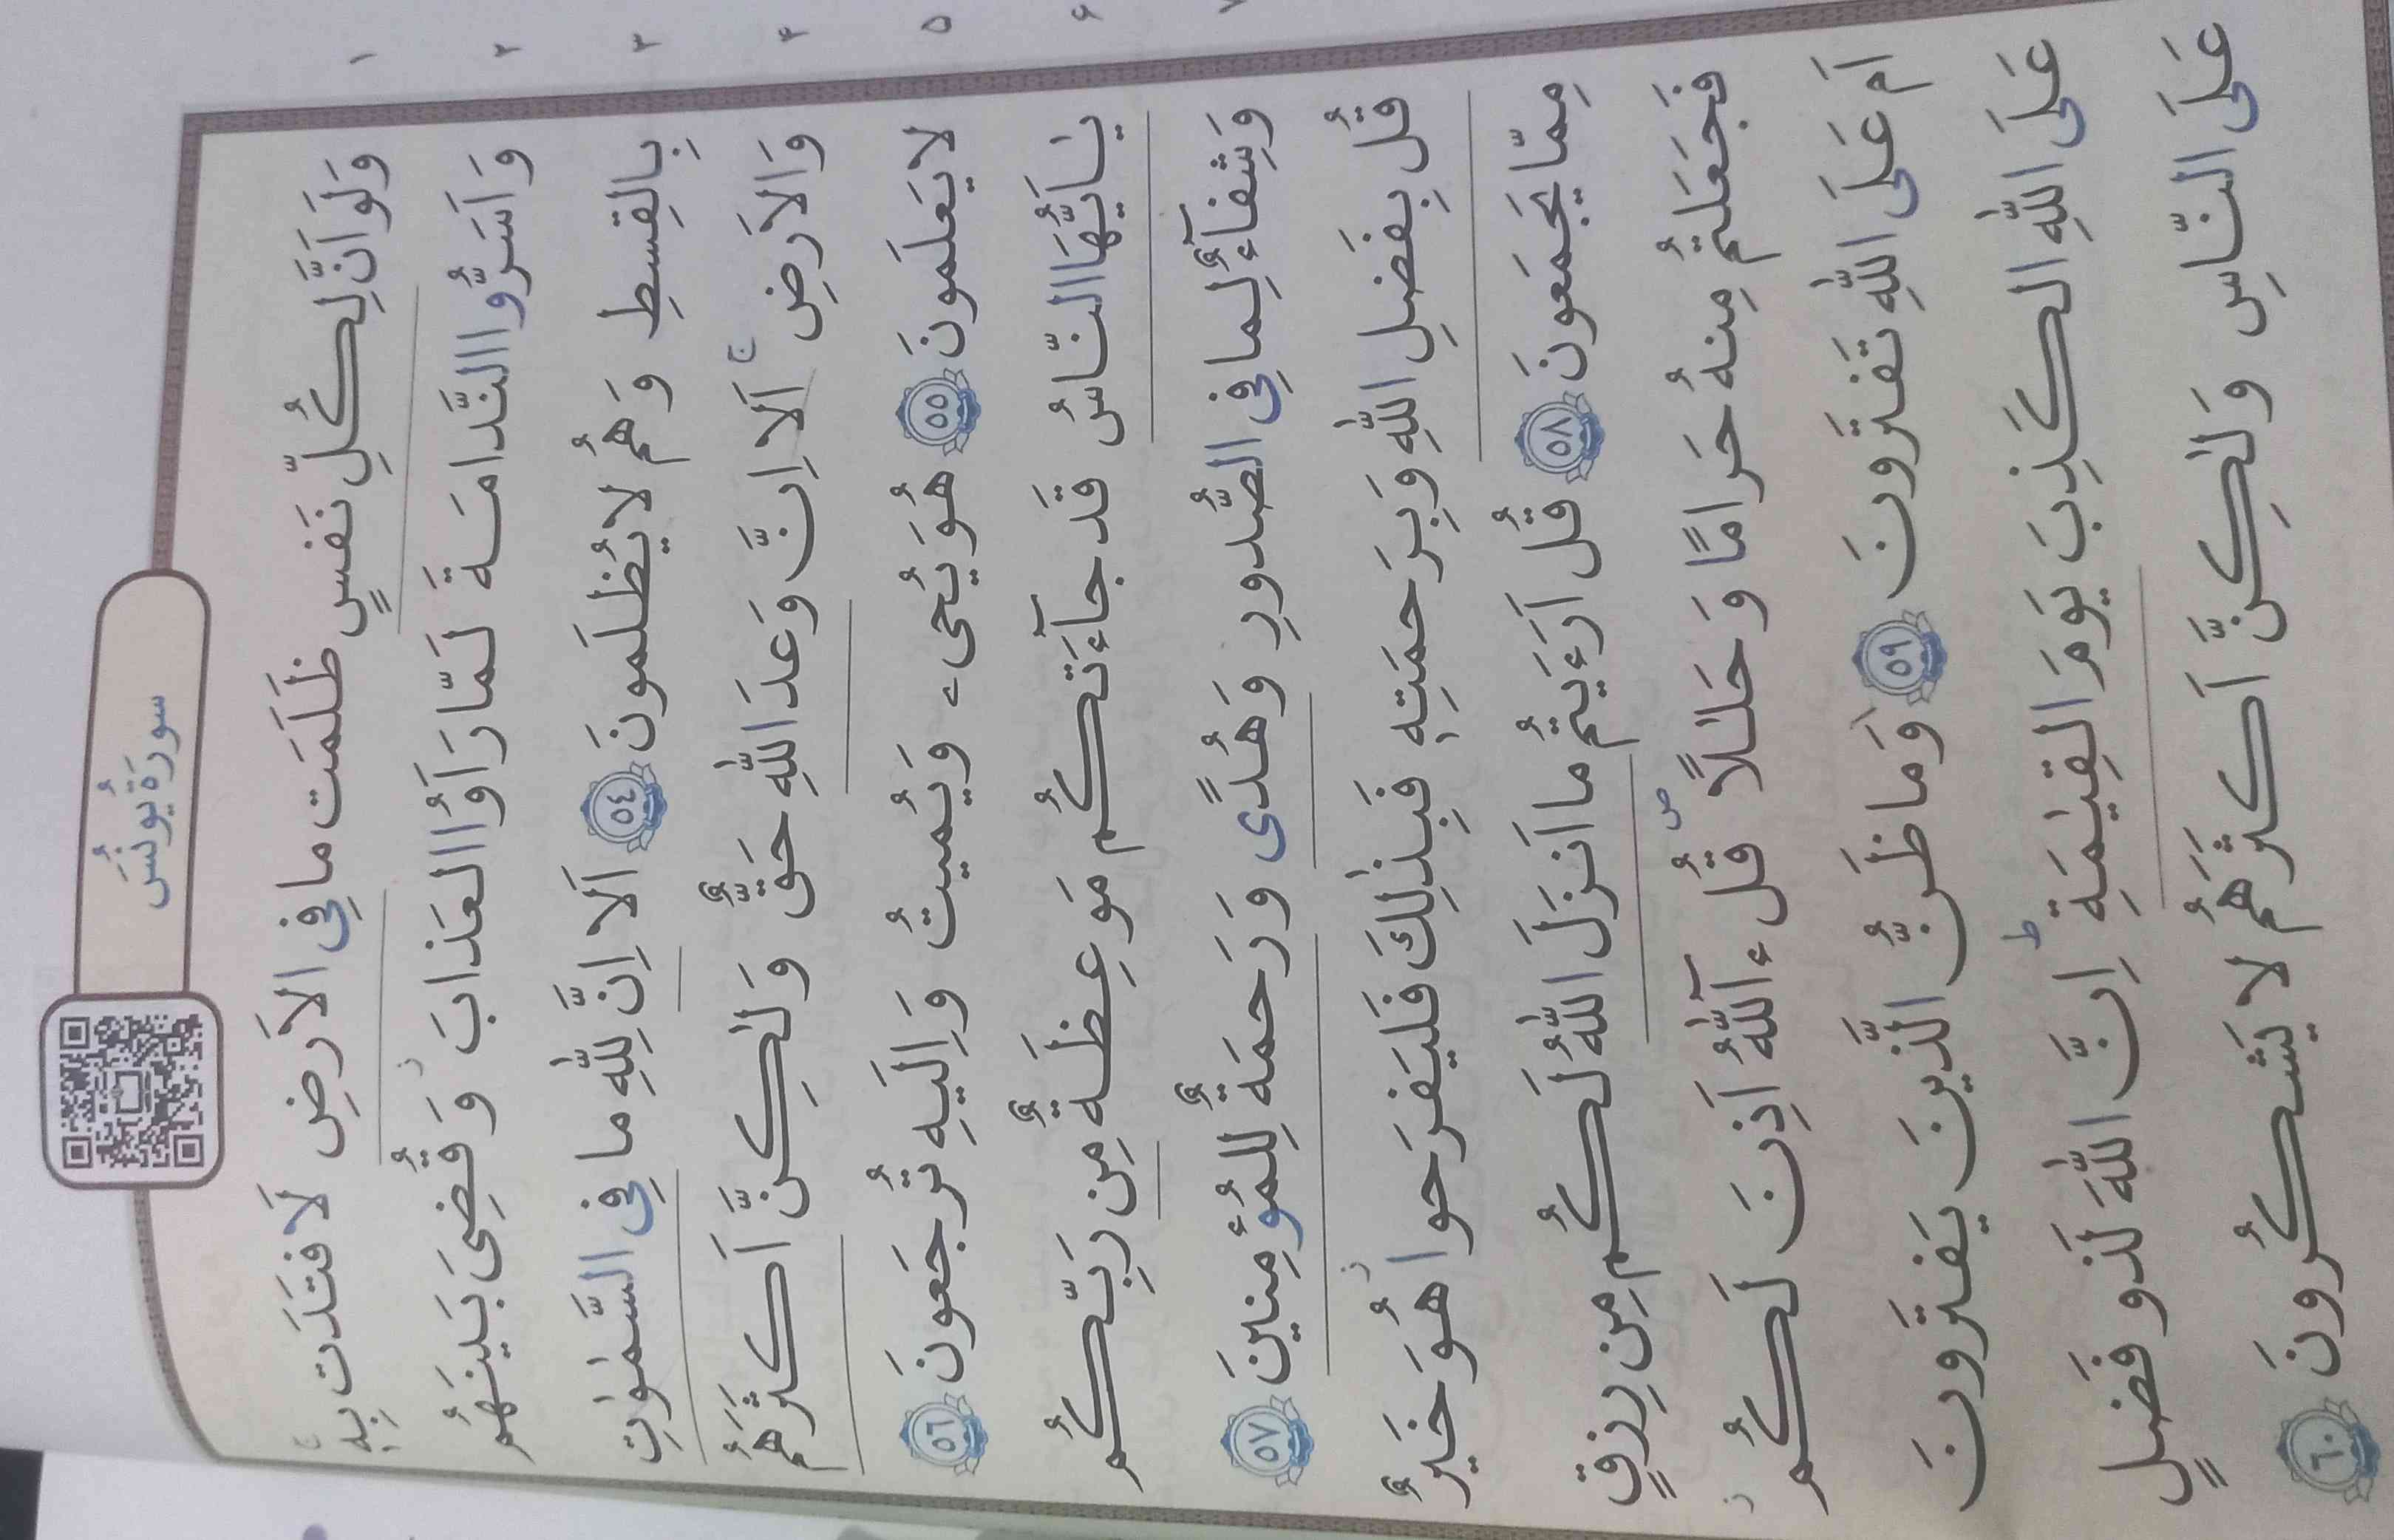 سورَة يونُسَ
وَلَو اَنَّ لِكُلِّ نَفسٍ ظَلَمَت ما فِى الاَرضِ لَافتَدَت بِهٖ ۗ
وَ اَسَرُّوا النَّدامَةَ لَمّا رَاَوُا العَذابَ ۖ وَ قُضِىَ بَينَهُم
بِالقِسطِ وَ هُم لا يُظلَمونَ ﴿٥٤﴾ اَلا اِنَّ لِلّٰهِ ما فِى السَّمٰوٰتِ
وَ الاَرضِ ۗ اَلا اِنَّ وَعدَ اللّٰهِ حَقٌّ وَ لٰكِنَّ اَكثَرَهُم
لا يَعلَمونَ ﴿٥٥﴾ هُوَ يُحىۦ وَ يُميتُ وَ اِلَيهِ تُرجَعونَ ﴿٥٦﴾
يٰاَيُّهَا النّاسُ قَد جآءَتكُم مَوعِظَةٌ مِن رَبِّكُم
وَ شِفآءٌ لِما فِى الصُّدورِ وَ هُدًى وَ رَحمَةٌ لِلمُؤمِنينَ ﴿٥٧﴾
قُل بِفَضلِ اللّٰهِ وَ بِرَحمَتِهٖ فَبِذٰلِكَ فَليَفرَحوا هُوَ خَيرٌ
مِمّا يَجمَعونَ ﴿٥٨﴾ قُل اَرَءَيتُم ما اَنزَلَ اللّٰهُ لَكُم مِن رِزقٍ
فَجَعَلتُم مِنهُ حَرامًا وَ حَلٰلًا قُل ءآللّٰهُ اَذِنَ لَكُم
اَم عَلَى اللّٰهِ تَفتَرونَ ﴿٥٩﴾ وَ ما ظَنُّ الَّذينَ يَفتَرونَ
عَلَى اللّٰهِ الكَذِبَ يَومَ القِيٰمَةِ ؕ اِنَّ اللّٰهَ لَذو فَضلٍ
عَلَى النّاسِ وَ لٰكِنَّ اَكثَرَهُم لا يَشكُرونَ ﴿٦٠﴾
۱
۲
۳
۴
۵
۶
۷